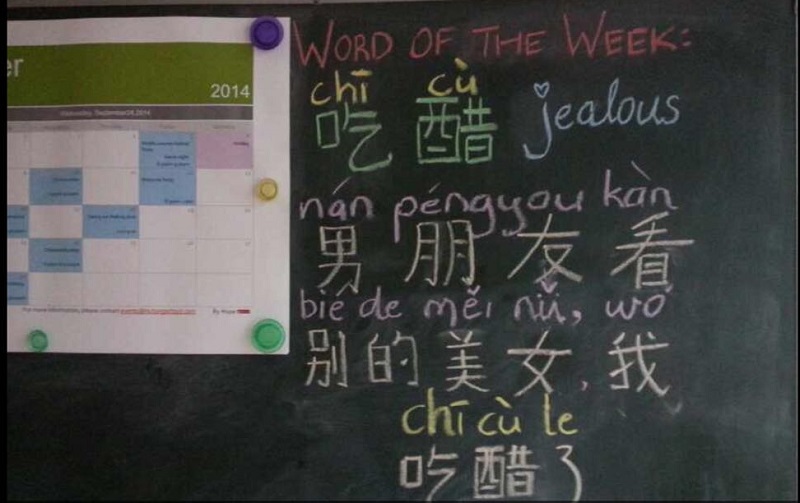 er
2014
WORD OF THE WEEK:
chī cù
吃 醋 jealous
nán péngyou kàn
男 朋 友 看
bié de měi nǚ, wǒ
别 的 美 女, 我
chī cù le
吃 醋 了